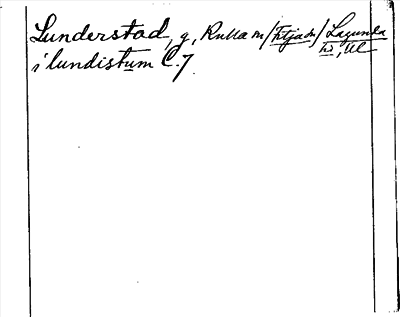 Lunderstad, g, Kulla m /Fittja sn/ Lagunda
hd, Ul
i lundistum C.7